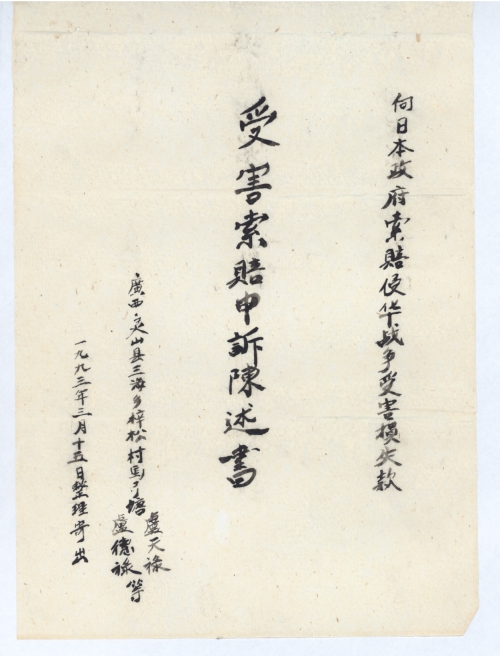 向日本政府索赔侵华战争受害損失款
受害索賠申訴陳述書
廣西灵山县三海乡梓松村馬了塘
盧天祿
盧德祿等
一九九三年三月十五日整理寄出